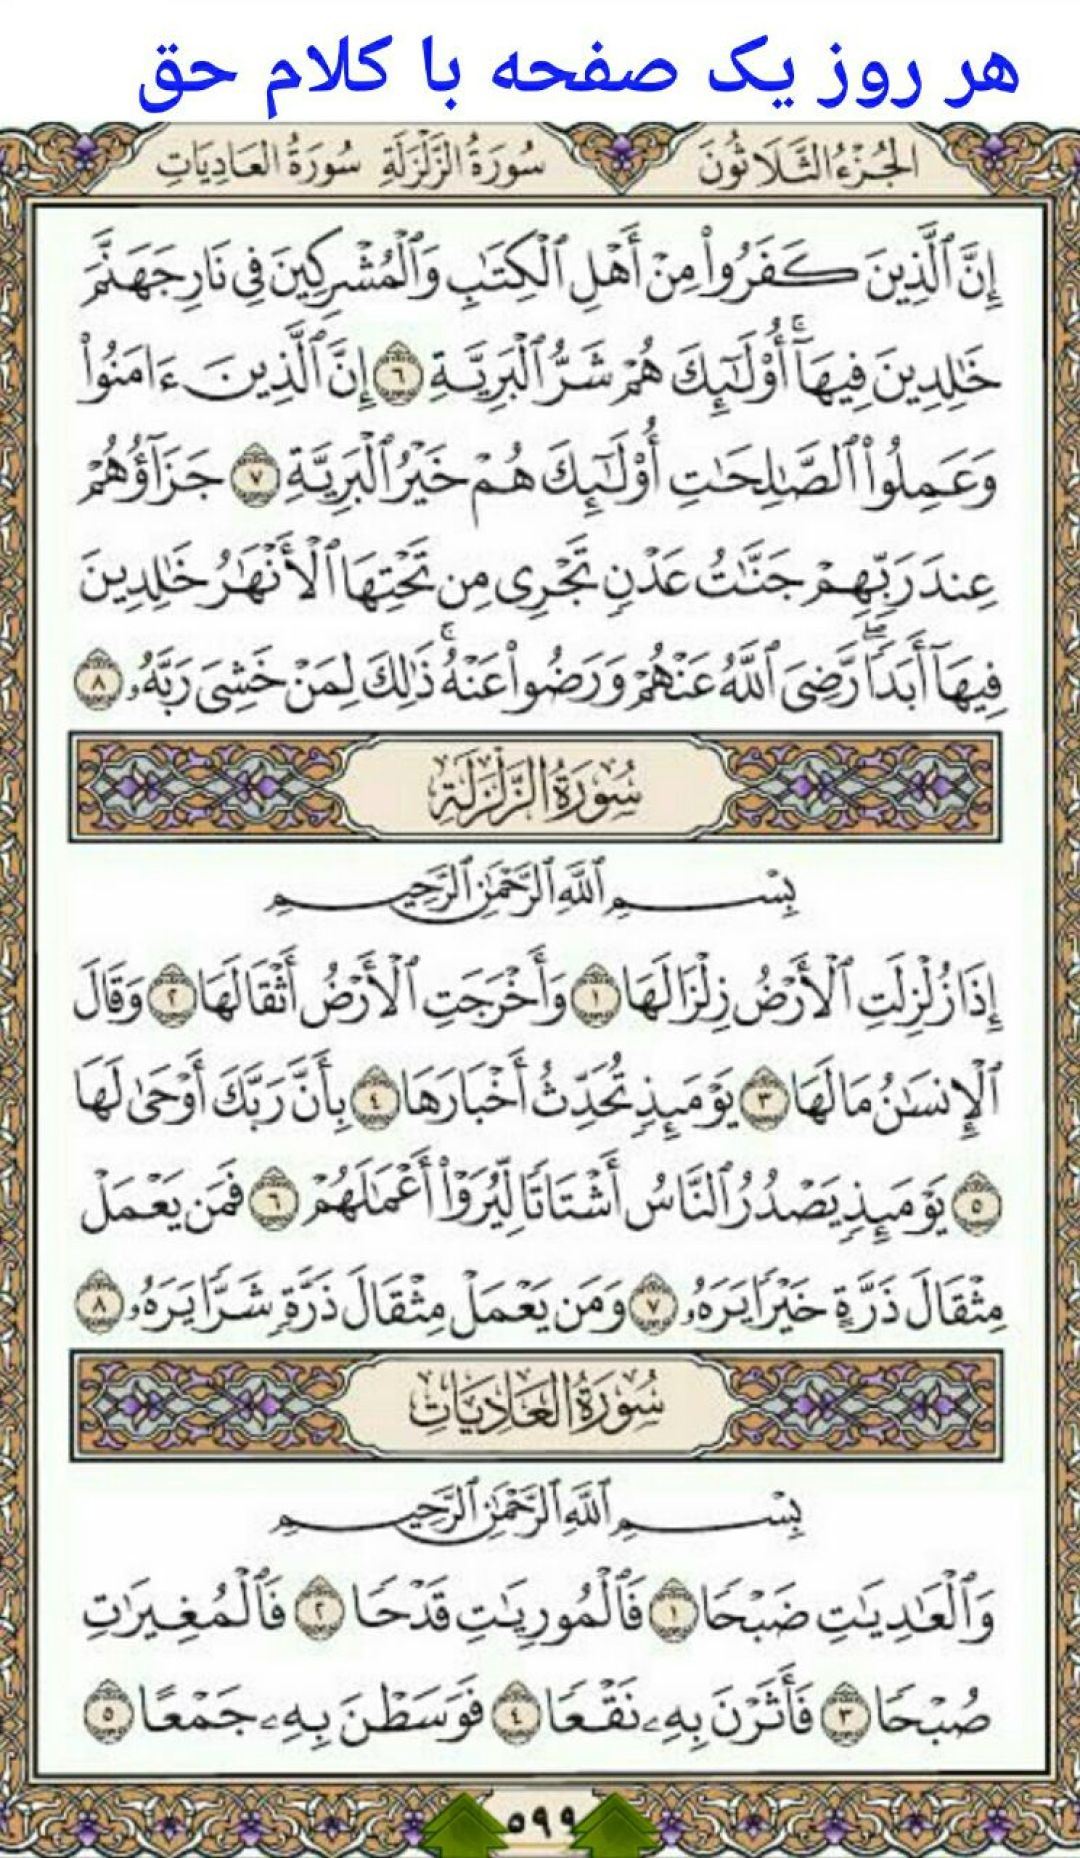 هر روز یک صفحه با کلام حق
الجُزْءُ الثَّلَاثُونَ
سُورَةُ الزَّلْزَلَةِ سُورَةُ العَادِيَاتِ
إِنَّ ٱلَّذِينَ كَفَرُوا۟ مِنْ أَهْلِ ٱلْكِتَٰبِ وَٱلْمُشْرِكِينَ فِى نَارِ جَهَنَّمَ
خَٰلِدِينَ فِيهَآ ۚ أُو۟لَٰٓئِكَ هُمْ شَرُّ ٱلْبَرِيَّةِ ٦ إِنَّ ٱلَّذِينَ ءَامَنُوا۟
وَعَمِلُوا۟ ٱلصَّٰلِحَٰتِ أُو۟لَٰٓئِكَ هُمْ خَيْرُ ٱلْبَرِيَّةِ ٧ جَزَآؤُهُمْ
عِندَ رَبِّهِمْ جَنَّٰتُ عَدْنٍ تَجْرِى مِن تَحْتِهَا ٱلْأَنْهَٰرُ خَٰلِدِينَ
فِيهَآ أَبَدًا ۖ رَّضِىَ ٱللَّهُ عَنْهُمْ وَرَضُوا۟ عَنْهُ ۚ ذَٰلِكَ لِمَنْ خَشِىَ رَبَّهُۥ ٨
سُورَةُ الزَّلْزَلَةِ
بِسْمِ ٱللَّهِ ٱلرَّحْمَٰنِ ٱلرَّحِيمِ
إِذَا زُلْزِلَتِ ٱلْأَرْضُ زِلْزَالَهَا ١ وَأَخْرَجَتِ ٱلْأَرْضُ أَثْقَالَهَا ٢ وَقَالَ
ٱلْإِنسَٰنُ مَا لَهَا ٣ يَوْمَئِذٍ تُحَدِّثُ أَخْبَارَهَا ٤ بِأَنَّ رَبَّكَ أَوْحَىٰ لَهَا
٥ يَوْمَئِذٍ يَصْدُرُ ٱلنَّاسُ أَشْتَاتًا لِّيُرَوْا۟ أَعْمَٰلَهُمْ ٦ فَمَن يَعْمَلْ
مِثْقَالَ ذَرَّةٍ خَيْرًا يَرَهُۥ ٧ وَمَن يَعْمَلْ مِثْقَالَ ذَرَّةٍ شَرًّا يَرَهُۥ ٨
سُورَةُ العَادِيَاتِ
بِسْمِ ٱللَّهِ ٱلرَّحْمَٰنِ ٱلرَّحِيمِ
وَٱلْعَٰدِيَٰتِ ضَبْحًا ١ فَٱلْمُورِيَٰتِ قَدْحًا ٢ فَٱلْمُغِيرَٰتِ
صُبْحًا ٣ فَأَثَرْنَ بِهِۦ نَقْعًا ٤ فَوَسَطْنَ بِهِۦ جَمْعًا ٥
٥٩٩